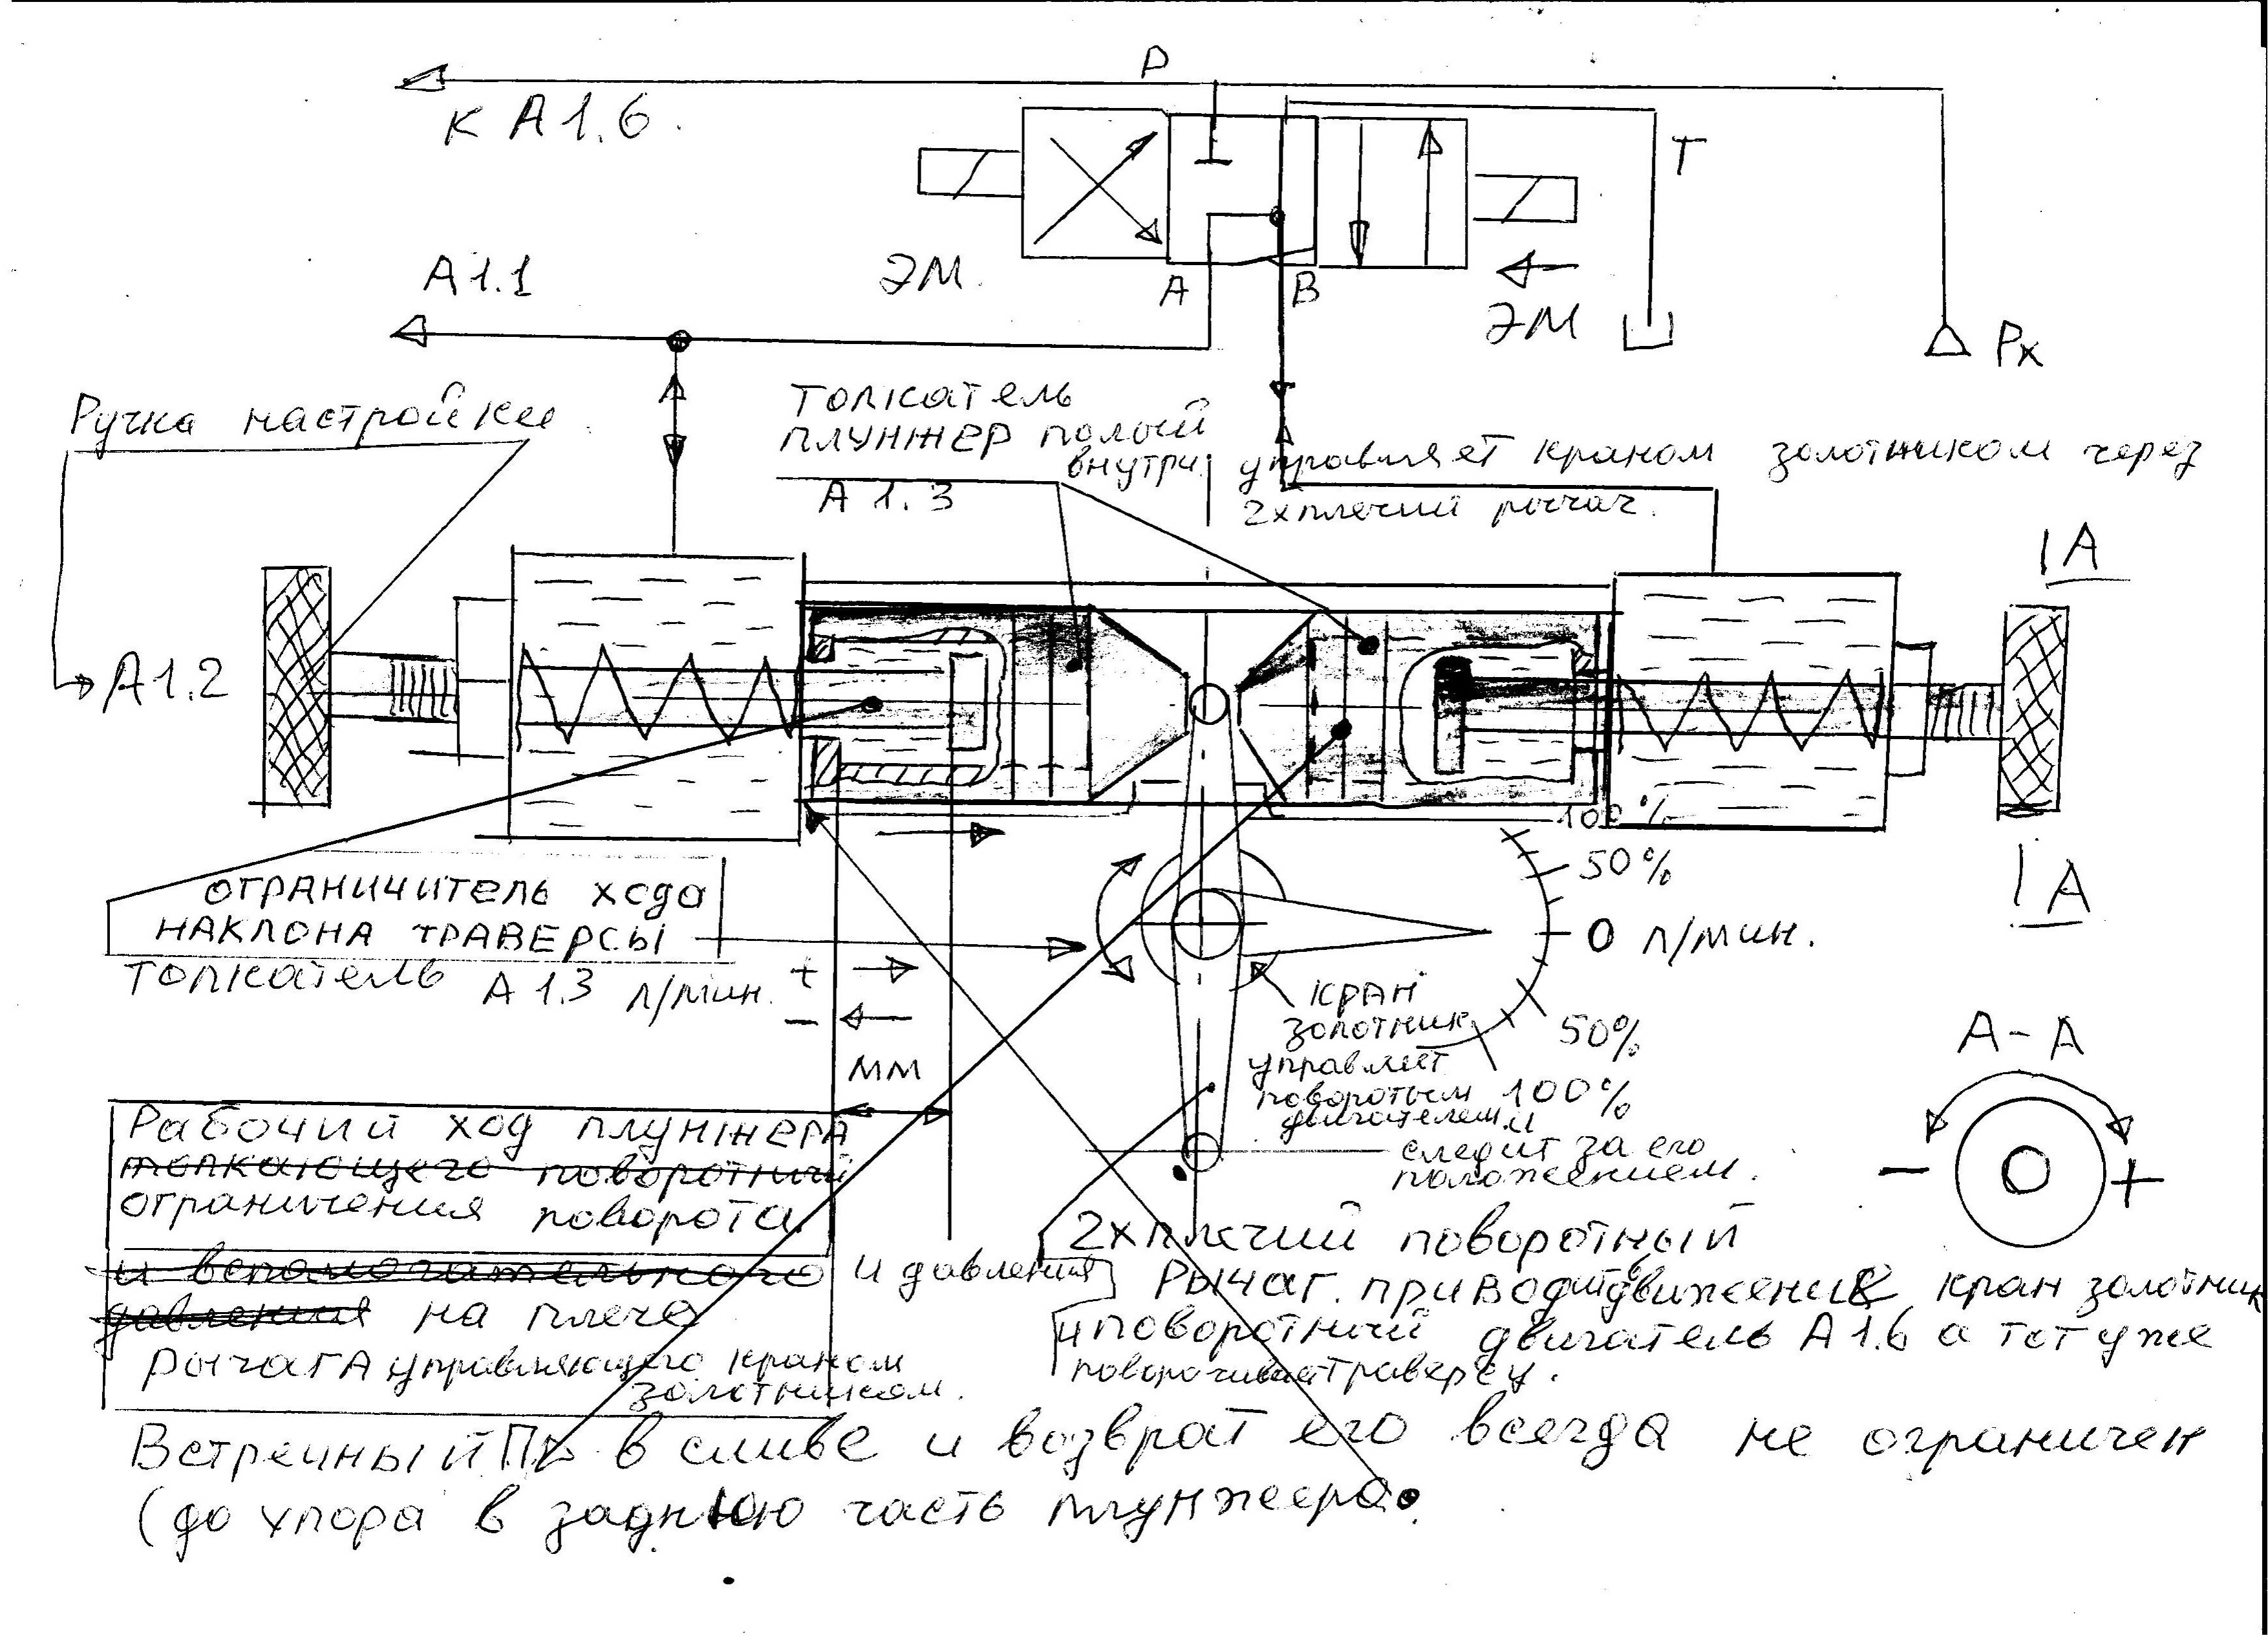 P
К А1.6.
T
ЭМ.
A
B
А1.1
ЭМ
Рх
Ручка настройки
толкатель
плунжер полый
внутри
А 1.3
управляет краном золотником через
2хплечий рычаг.
А1.2
1 А
100%
50%
ограничитель хода
наклона траверсы
толкатель А 1.3 л/мин.
+
-
0 л/мин.
1 А
кран
золотник
управляет
поворотым
двигателем и
следит за его
положением.
50%
100%
мм
А-А
-
+
Рабочий ход плунжера
толкающего поворотный
ограничения поворота
и вспомогательного и давления
давления на плечо
рычага управляющего краном
золотником.
2хплечий поворотный
Рычаг. приводит движение кран золотник
и поворотний двигатель А1.6 а тот уже
поворачивает траверсу.
Встречный Пл в сливе и возврат его всегда не ограничен
(до упора в заднюю часть плунжера.